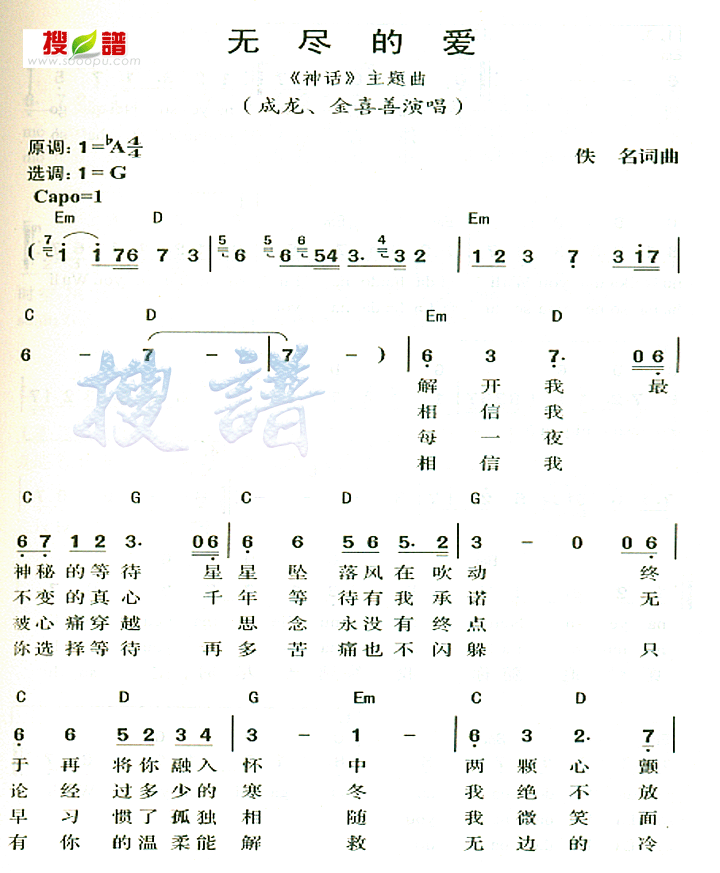 搜譜
www.sooopu.com
无尽的爱
《神话》主题曲
(成龙、金喜善演唱)
原调:1=♭A4/4
佚 名词曲
选调:1=G
Capo=1
Em D Em
( 7 1 1 76 7 3 | 5 6 5 6 6 54 3. 4 3 2 | 1 2 3 7 3 17 |
C D Em D
6 - 7 - | 7 - ) | 6 3 7. 06 |
解开我 最
相信我
每一夜
相信我
搜譜
C G C D G
6 7 1 2 3. 06 | 6 6 5 6 5. 2 | 3 - 0 06 |
神秘的等待 星星坠落风在吹动 终
不变的真心 千年等待有我承诺 无
被心痛穿越 思念永没有终点
你选择等待 再多苦痛也不闪躲 只
C D G Em C D
6 6 5 2 3 4 | 3 - 1 - | 6 3 2. 7 |
于再将你融入怀 中 两颗心颤
论经过多少的寒 冬 我绝不放
早习惯了孤独相 随 我微笑面
有你的温柔能解 救 无边的冷